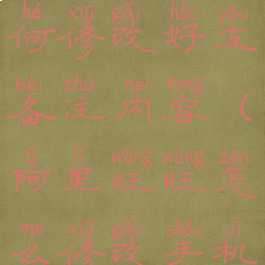 hé xiū gǎi hǎo yǒu
何修改好友
bèi zhù nèi róng
备注内容（
ā lǐ wàng wàng zěn
阿里旺旺怎
me xiū gǎi shǒu jī
么修改手机